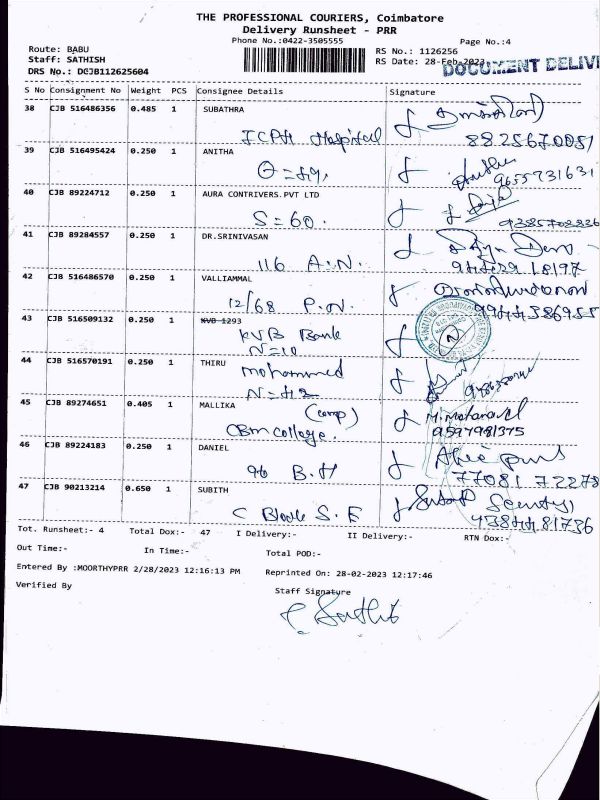 THE PROFESSIONAL COURIERS, Coimbatore
Delivery Runsheet - PRR
Phone No.:0422-3505555
Page No.:4
Route: BABU
RS No.: 1126256
Staff: SATHISH
RS Date: 28-Feb-2023
DRS No.: DCJB112625604
DOCUMENT DELIV
S No Consignment No Weight PCS Consignee Details Signature
38 CJB 516486356 0.485 1 SUBATHRA
Hospital
39 CJB 516495424 0.250 1 ANITHA
9655731631
40 CJB 89224712 0.250 1 AURA CONTRIVERS.PVT LTD
S = 60.
41 CJB 89284557 0.250 1 DR.SRINIVASAN
116 A.N.
42 CJB 516486570 0.250 1 VALLIAMMAL
12/68 P.N.
9944386955
43 CJB 516509132 0.250 1 KVB 1293
KVB Bank
N=10
44 CJB 516570191 0.250 1 THIRU
mohammed
N=42
45 CJB 89274651 0.405 1 MALLIKA
(comp)
CBM College.
9597981375
46 CJB 89224183 0.250 1 DANIEL
96 B.H
77081 72278
47 CJB 90213214 0.650 1 SUBITH
C Block S.E
Security
Tot. Runsheet:- 4 Total Dox:- 47 I Delivery:- II Delivery:- RTN Dox:-
Out Time:- In Time:- Total POD:-
Entered By :MOORTHYPRR 2/28/2023 12:16:13 PM Reprinted On: 28-02-2023 12:17:46
Verified By
Staff Signature